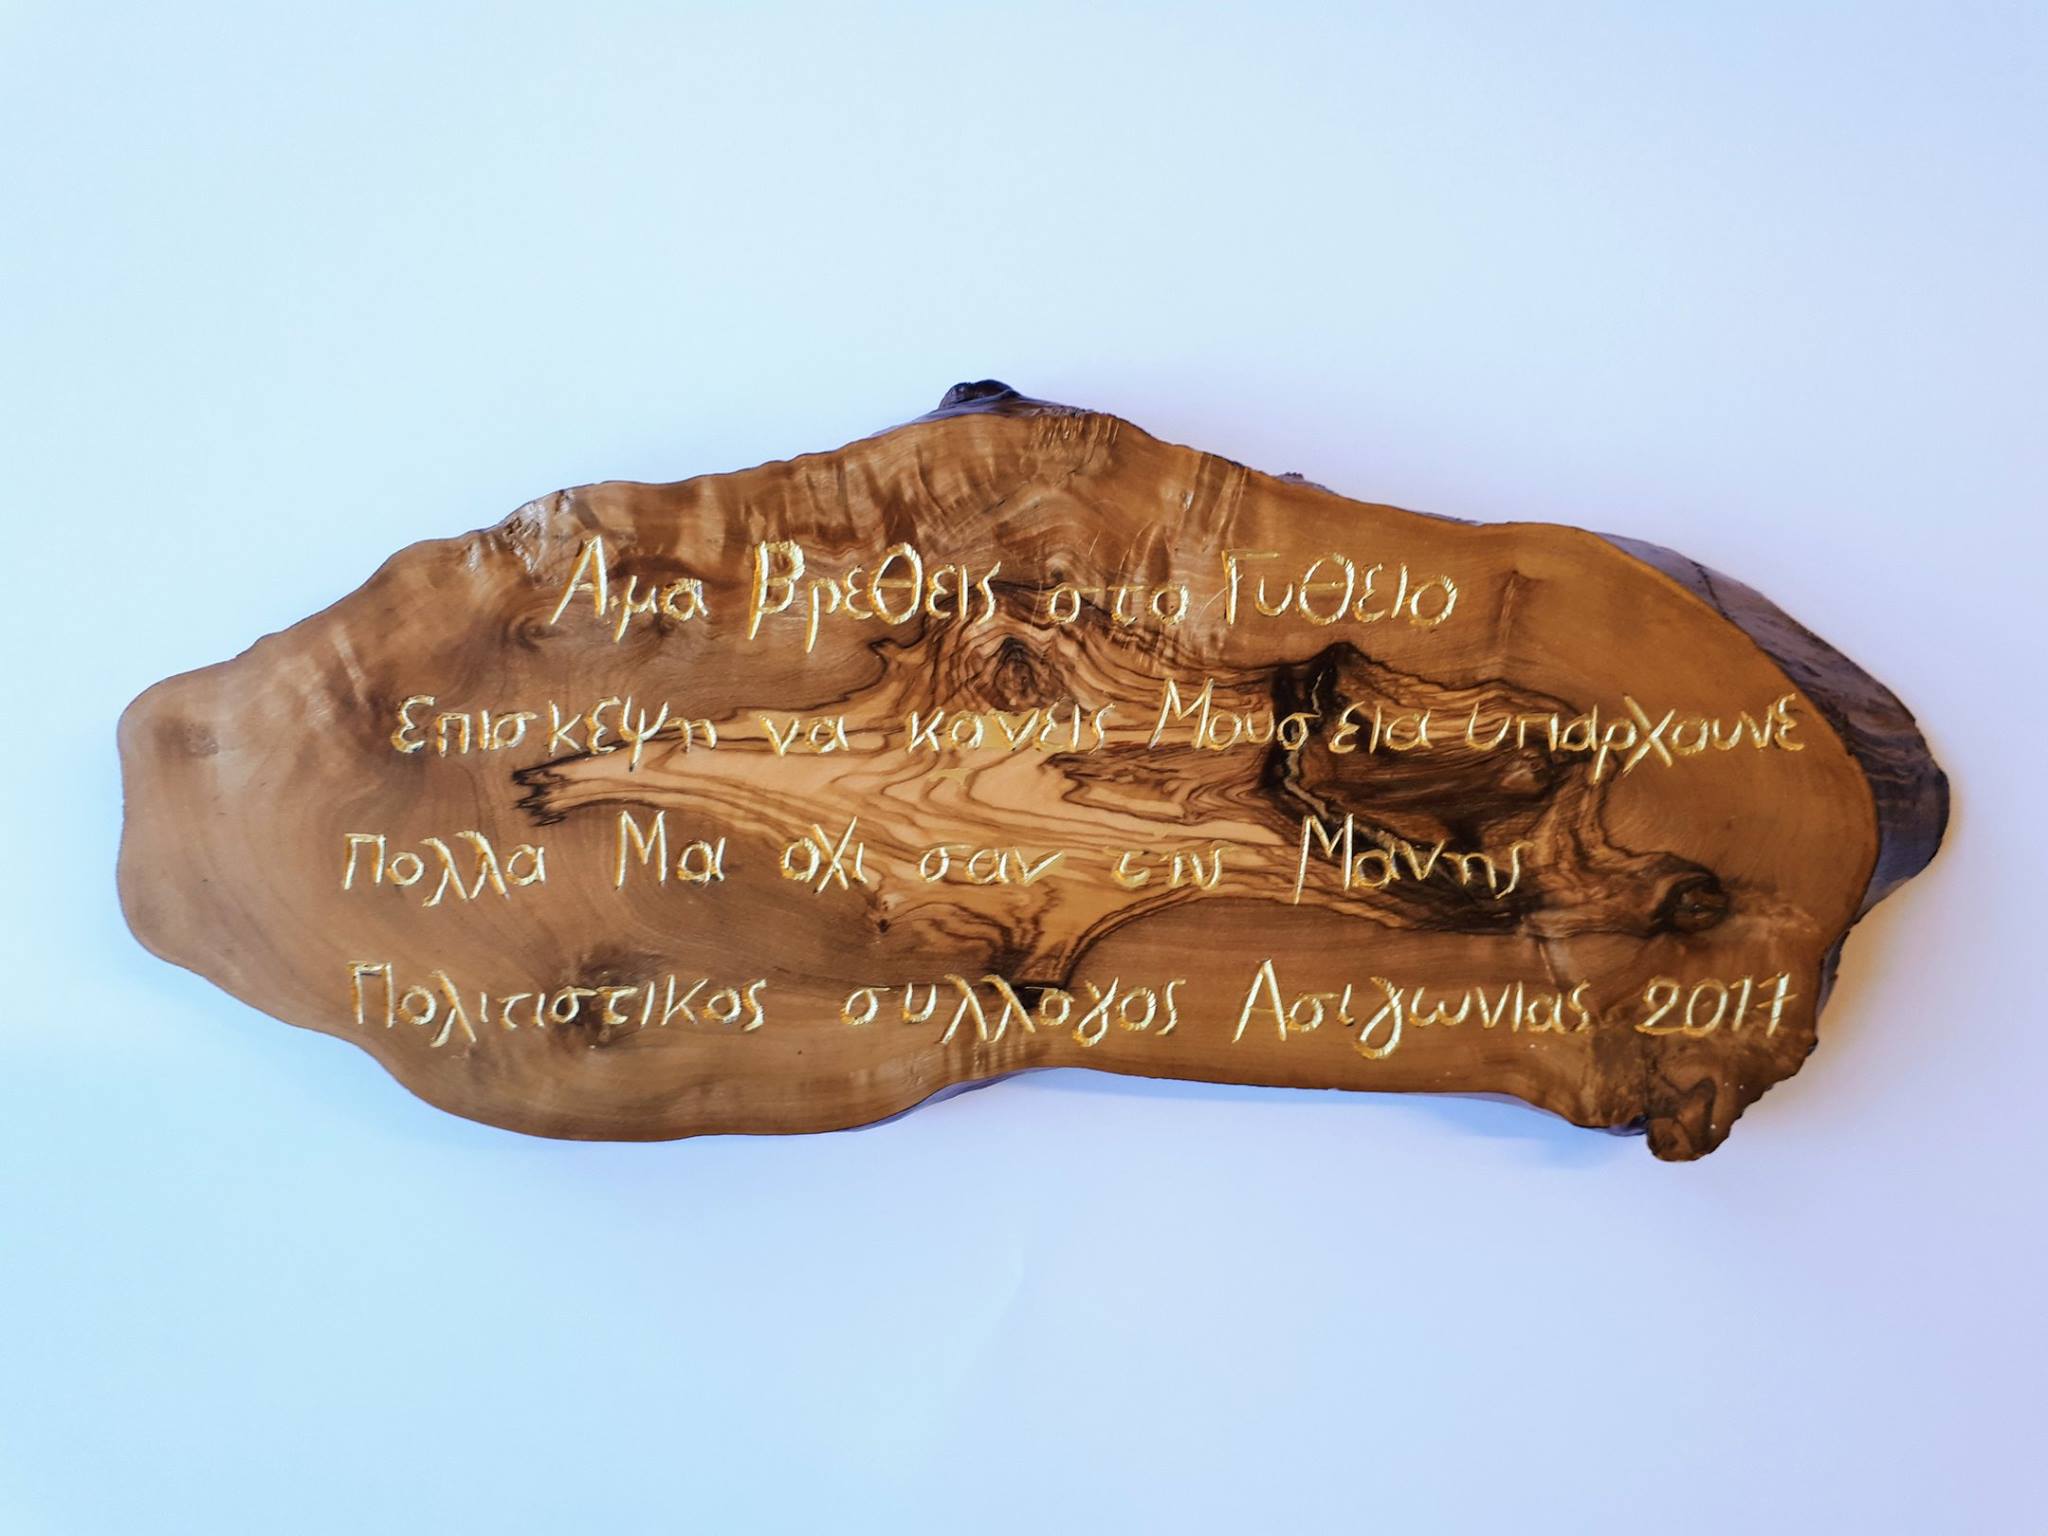 Αμα Βρεθεις στο Γυθειο
επισκεψη να κανεις Μουσεια υπαρχουνε
Πολλα Μα οχι σαν της Μανης
Πολιτιστικος συλλογος Ασιγωνιας 2017